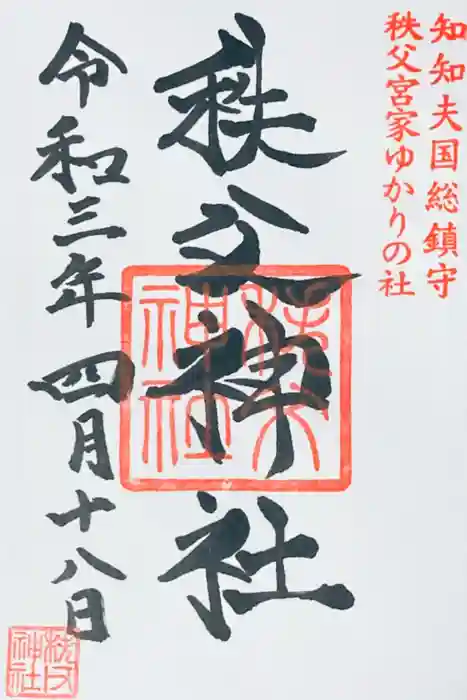 知知夫国総鎮守
秩父宮家ゆかりの社
秩父神社
令和三年四月十八日
秩父
神社
秩父
神社